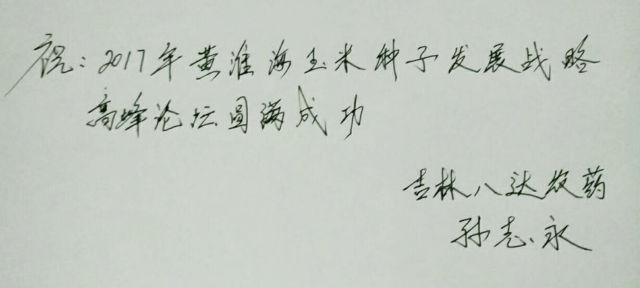 祝：2017年黄淮海玉米种子发展战略
高峰论坛圆满成功
吉林八达农药
孙志永